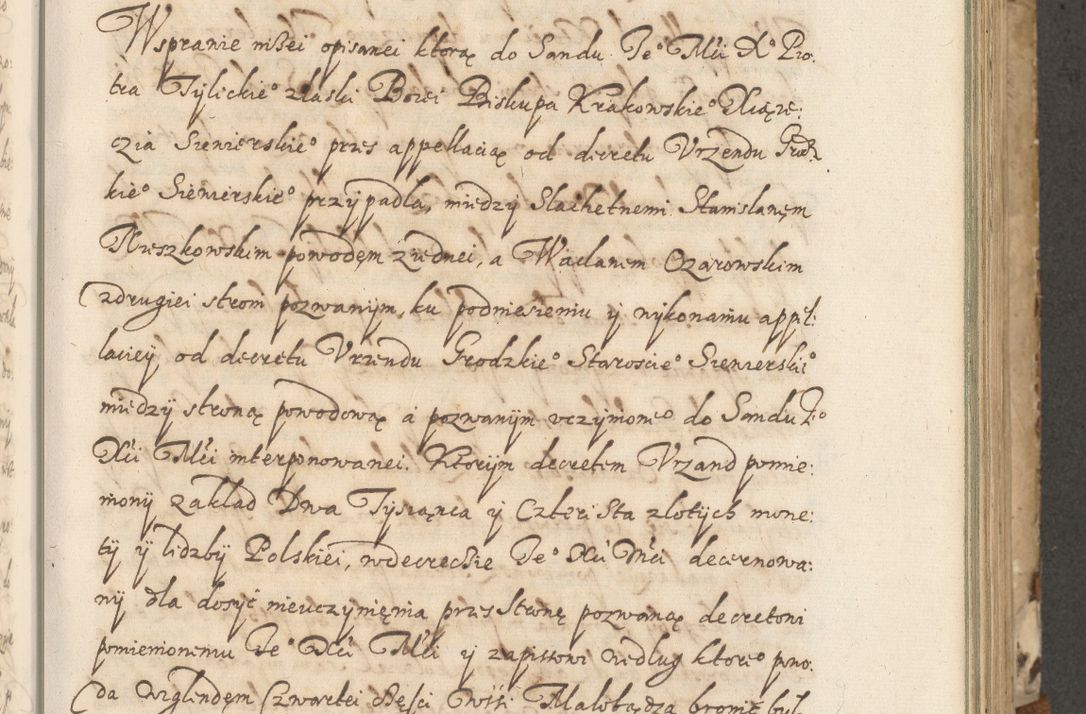 Wspranie niżei opisanei ktorą do Sandu Je° Mći X° Pio:
tra Tylickie° złaski Bożei Biskupa Krakowskie° Xiąże:
czia Siewierskie° przes appellaczią od decretu Vrzendu Grodz
kie° Siewierskie° przypadla, miedzy Slachetnemi Stanislawem
Mieszkowskim powodem ziednei, a Waclawem Ozarowskim
zdrugiei stroni pozwanijm, ku podniesieniu ij wijkonaniu appel:
laciej od decretu Vrzendu Grodzkie° Staroscie° Siewierskie°
miedzij stroną powodową a pozwanijm vczijnione° do Sandu Je°
Xći Mći interponowanei. Ktorijm decretem Vrzand pomie:
nionij zaklad Dwa Tysiąnca ij Czteri Sta zlotijch mone:
tij ij lidzbij Polskiei, wdecreckie Je° Xći Mći decernowa:
nij dla dosijć nieuczynienia przes Stronę pozwaną decretoni
pomienionemu Je° Xći Mći ij zapissowi wedlug ktore° powo:
da wzglendem Czwartei części wśi Malobądza bronić był